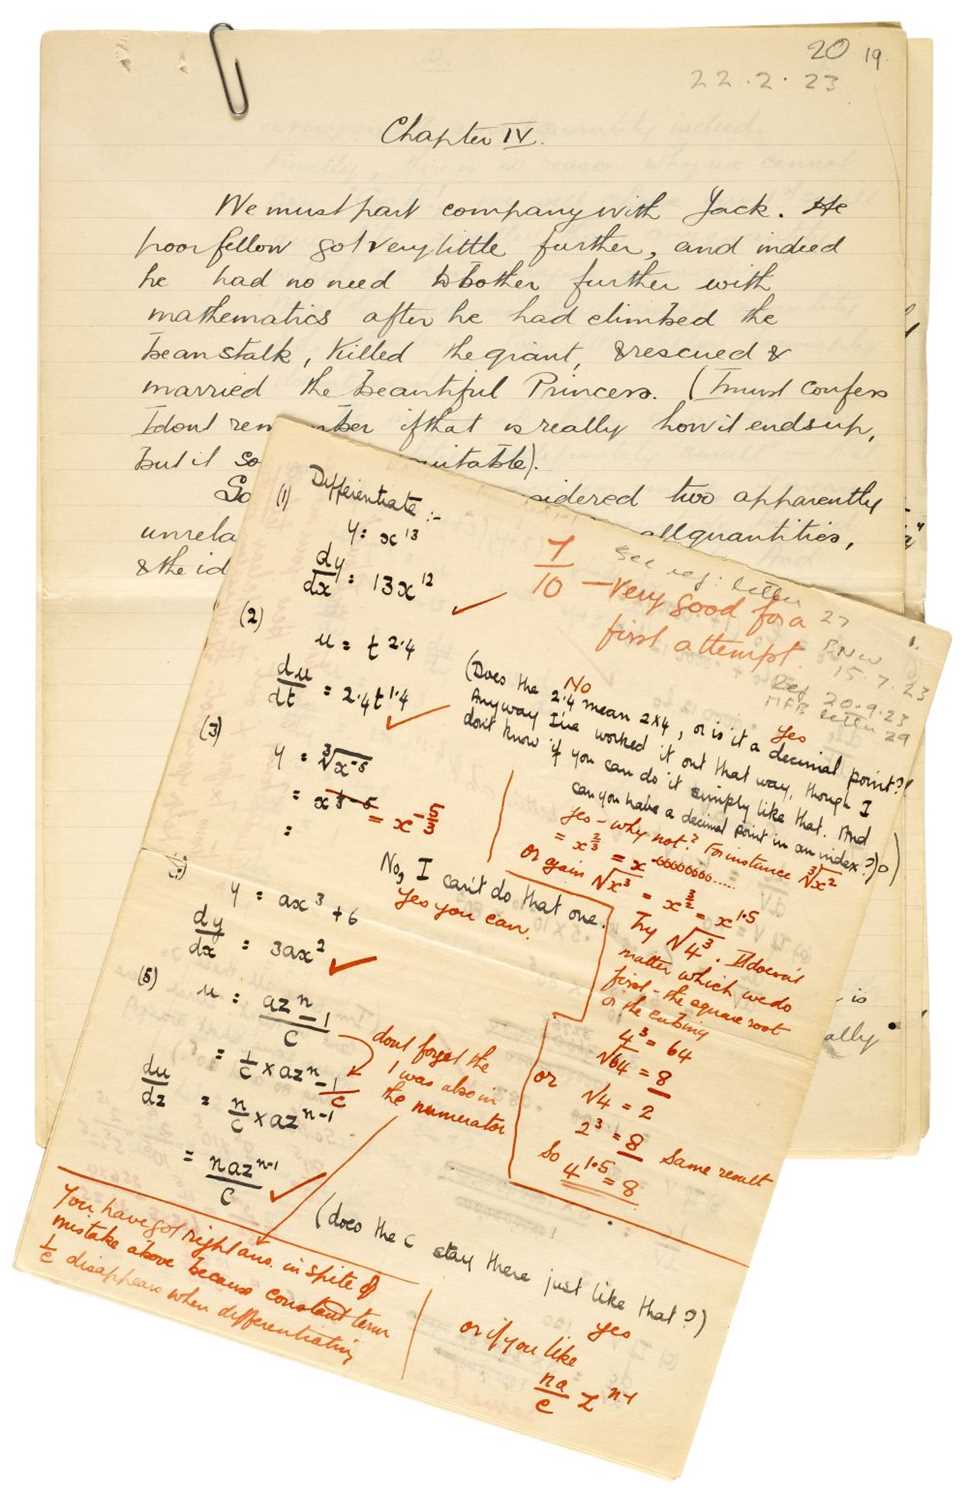 20 19
22.2.23
Chapter IV.
We must part company with Jack. He
poor fellow got very little further, and indeed
he had no need to bother further with
mathematics after he had climbed the
beanstalk, killed the giant, & rescued &
married the beautiful Princess. (I must confess
I dont remember if that is really how it ends up,
but it so uitable).
So sidered two apparently
unrela all quantities,
& the id
is
ally
(1) Differentiate :-
y = x^13
dy/dx = 13x^12
7/10 - Very good for a
first attempt.
See letter 27
15.7.23
20.9.23
letter 29
1.
(2)
u = t^2·4
du/dt = 2·4t^1·4
(Does the 2·4 mean 2x4, or is it a decimal point?
NO
Yes
Anyway I've worked it out that way, though I
dont know if you can do it simply like that. And
can you have a decimal point in an index?)
Yes - why not? For instance ∛x²
= x^2/3 = x^·66666666.....
or again √x³ = x^3/2 = x^1·5
Try √4³. It doesn't
matter which we do
first - the square root
or the cubing
4³ = 64
√64 = 8
or √4 = 2
2³ = 8 Same result
So 4^1·5 = 8
(3)
y = ∛x^-5
= x^-5/3
=
No, I can't do that one.
Yes you can.
y = ax³ + 6
dy/dx = 3ax²
(5)
u = az^n - 1/c
= 1/c × az^n - 1/c
du/dz = n/c × az^n-1
= naz^n-1/c
dont forget the
1 was also in
the numerator
(does the c stay there just like that?)
yes
or if you like
na/c z^n-1
You have got right ans. in spite of
mistake above because constant term
1/c disappears when differentiating